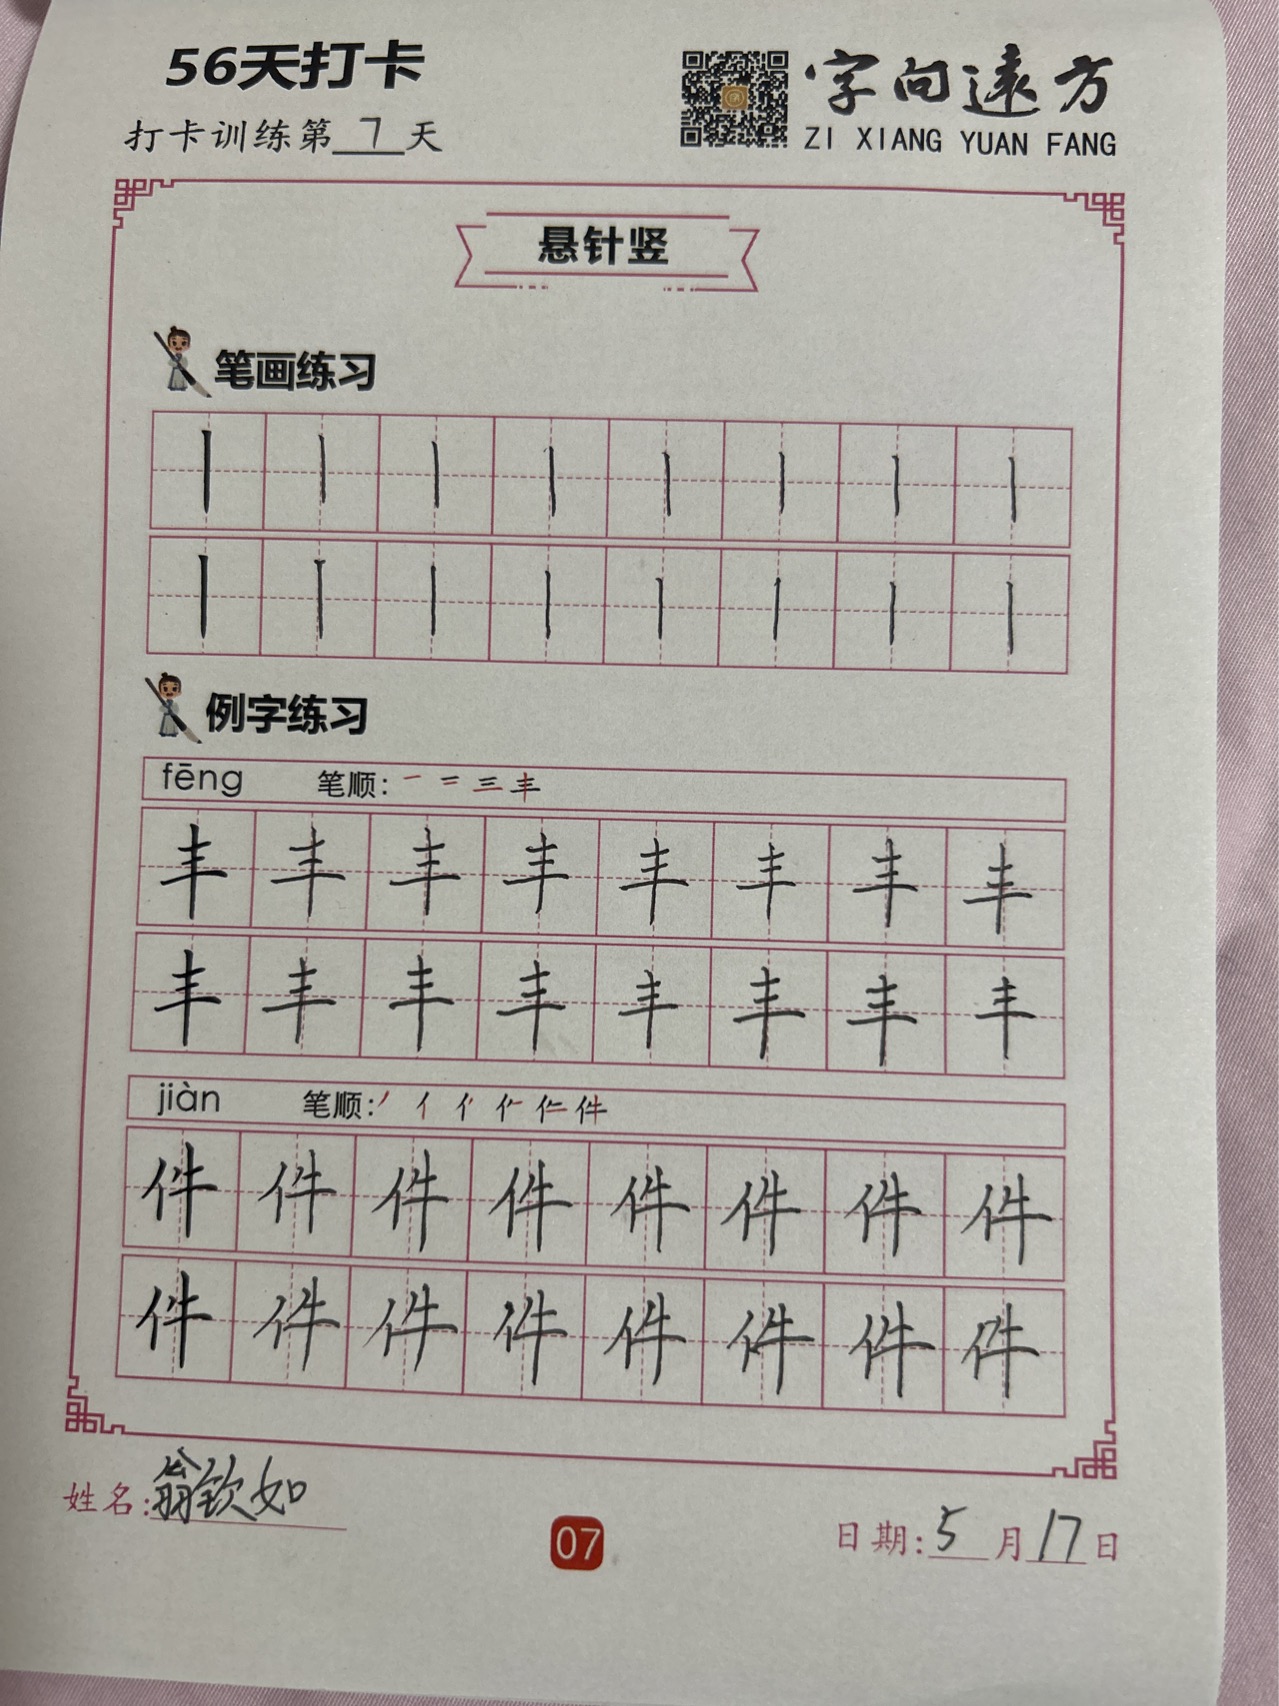 56天打卡
打卡训练第7天
字向遠方
ZI XIANG YUAN FANG
悬针竖
笔画练习
丨丨丨丨丨丨丨丨
丨丨丨丨丨丨丨丨
例字练习
fēng 笔顺：一 二 三 丰
丰丰丰丰丰丰丰丰
丰丰丰丰丰丰丰丰
jiàn 笔顺：丿 亻 件
件件件件件件件件
件件件件件件件件
姓名：翁钦如
07
日期：5月17日